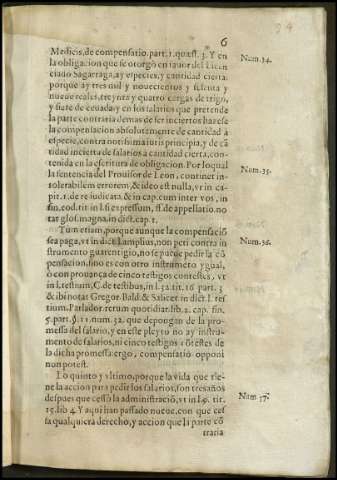 6
Medicis, de compensatio. part. 1. quæst. 3. Y en
la obligacion que se otorgò en fauor del Licen
ciado Sagarraga, ay especies, y cantidad cierta.
porque ay tres mil y nouecientos y setenta y
nueue reales, treynta y quatro cargas de trigo,
y siete de ceuada y en los salarios que pretende
la parte contraria demas de ser inciertos harese
la compensacion absolutemente de cantidad à
especie, contra notissima iuris principia, y de cã
tidad incierta de salarios à cantidad cierta, con-
tenida en la escritura de obligacion. Por lo qual
la sentencia del Prouisor de Leon, continet in-
tolerabilem errorem, & ideo est nulla, vt in ca-
pit. 1. de re iudicata, & in cap. cum inter vos, in
fin. eod. tit. in l. si expressum, ff. de appellatio. no
tat glos. magna, in dict. cap. 1.
Tum etiam, porque aunque la compensaciõ
sea paga, vt in dict. l. amplius, non peti contra in
strumento guarentigio, no se puede pedir la cõ
pensacion, sino es con otro instrumẽto ygual,
ò con prouança de cinco testigos contestes, vt
in l. testium, C. de testibus, in l. 32. tit. 16. part. 3
& ibi notat Gregor. Bald. & Salicet. in dict. l. tes
tium, Parlador. rerum quotidiar. lib. 2. cap. fin.
5. part. §. 11. num. 32. que depongan de la pro-
messa del salario, y en este pleyto no ay instru-
mento de salarios, ni cinco testigos cõtestes de
la dicha promessa ergo, compensatio opponi
non potest.
Lo quinto y vltimo, porque la vida que tie-
ne la accion para pedir los salarios, son tres años
despues que cessò la administraciõ, vt in l. 9. tit.
15. lib. 4. Y aqui han passado nueue, con que ces
sa qualquiera derecho, y accion que la parte cõ
traria
Num. 34.
Num. 35.
Num. 36.
Num. 37.